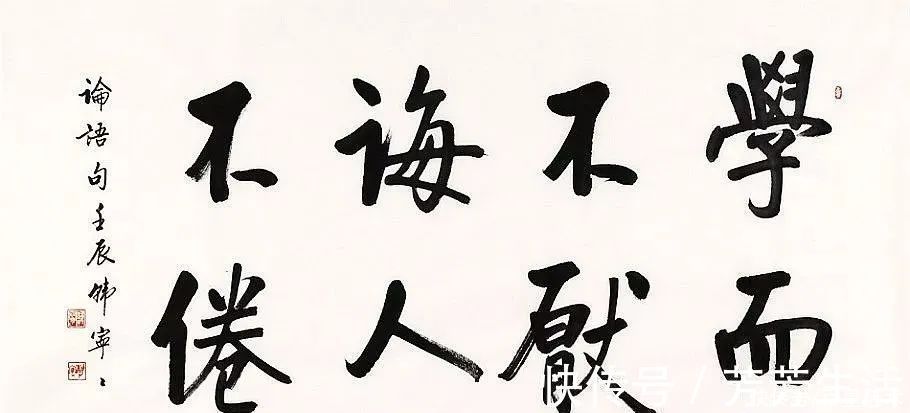 學而
不厭
誨人
不倦
論語句壬辰韓寧〻
快传号 /
生活